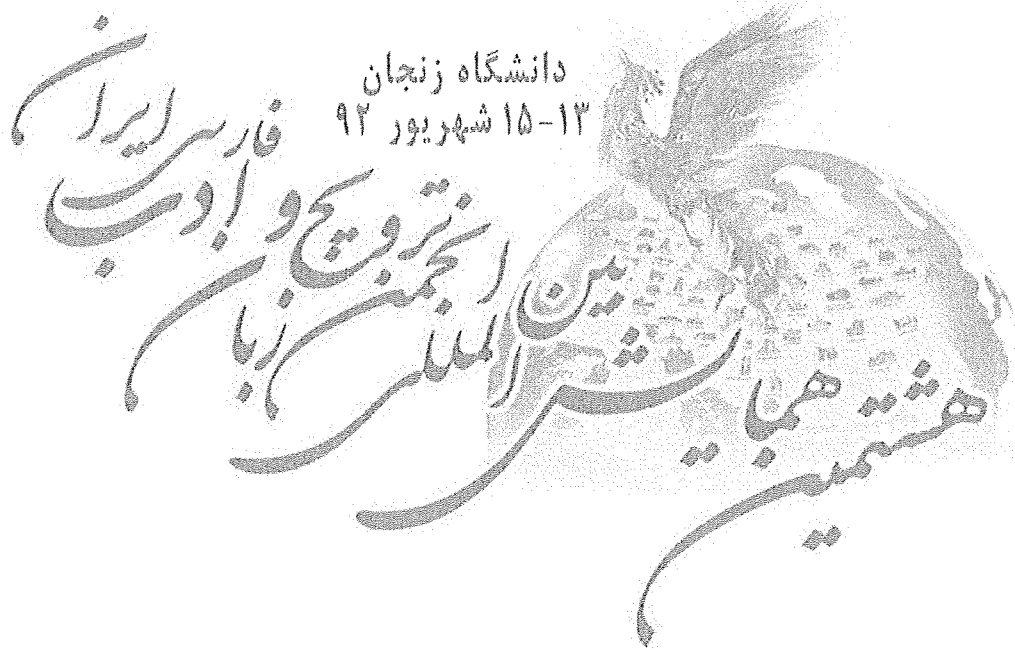 دانشگاه زنجان
۱۳-۱۵ شهریور ۹۲
هشتمین همایش بین المللی انجمن ترویج زبان و ادب فارسی ایران